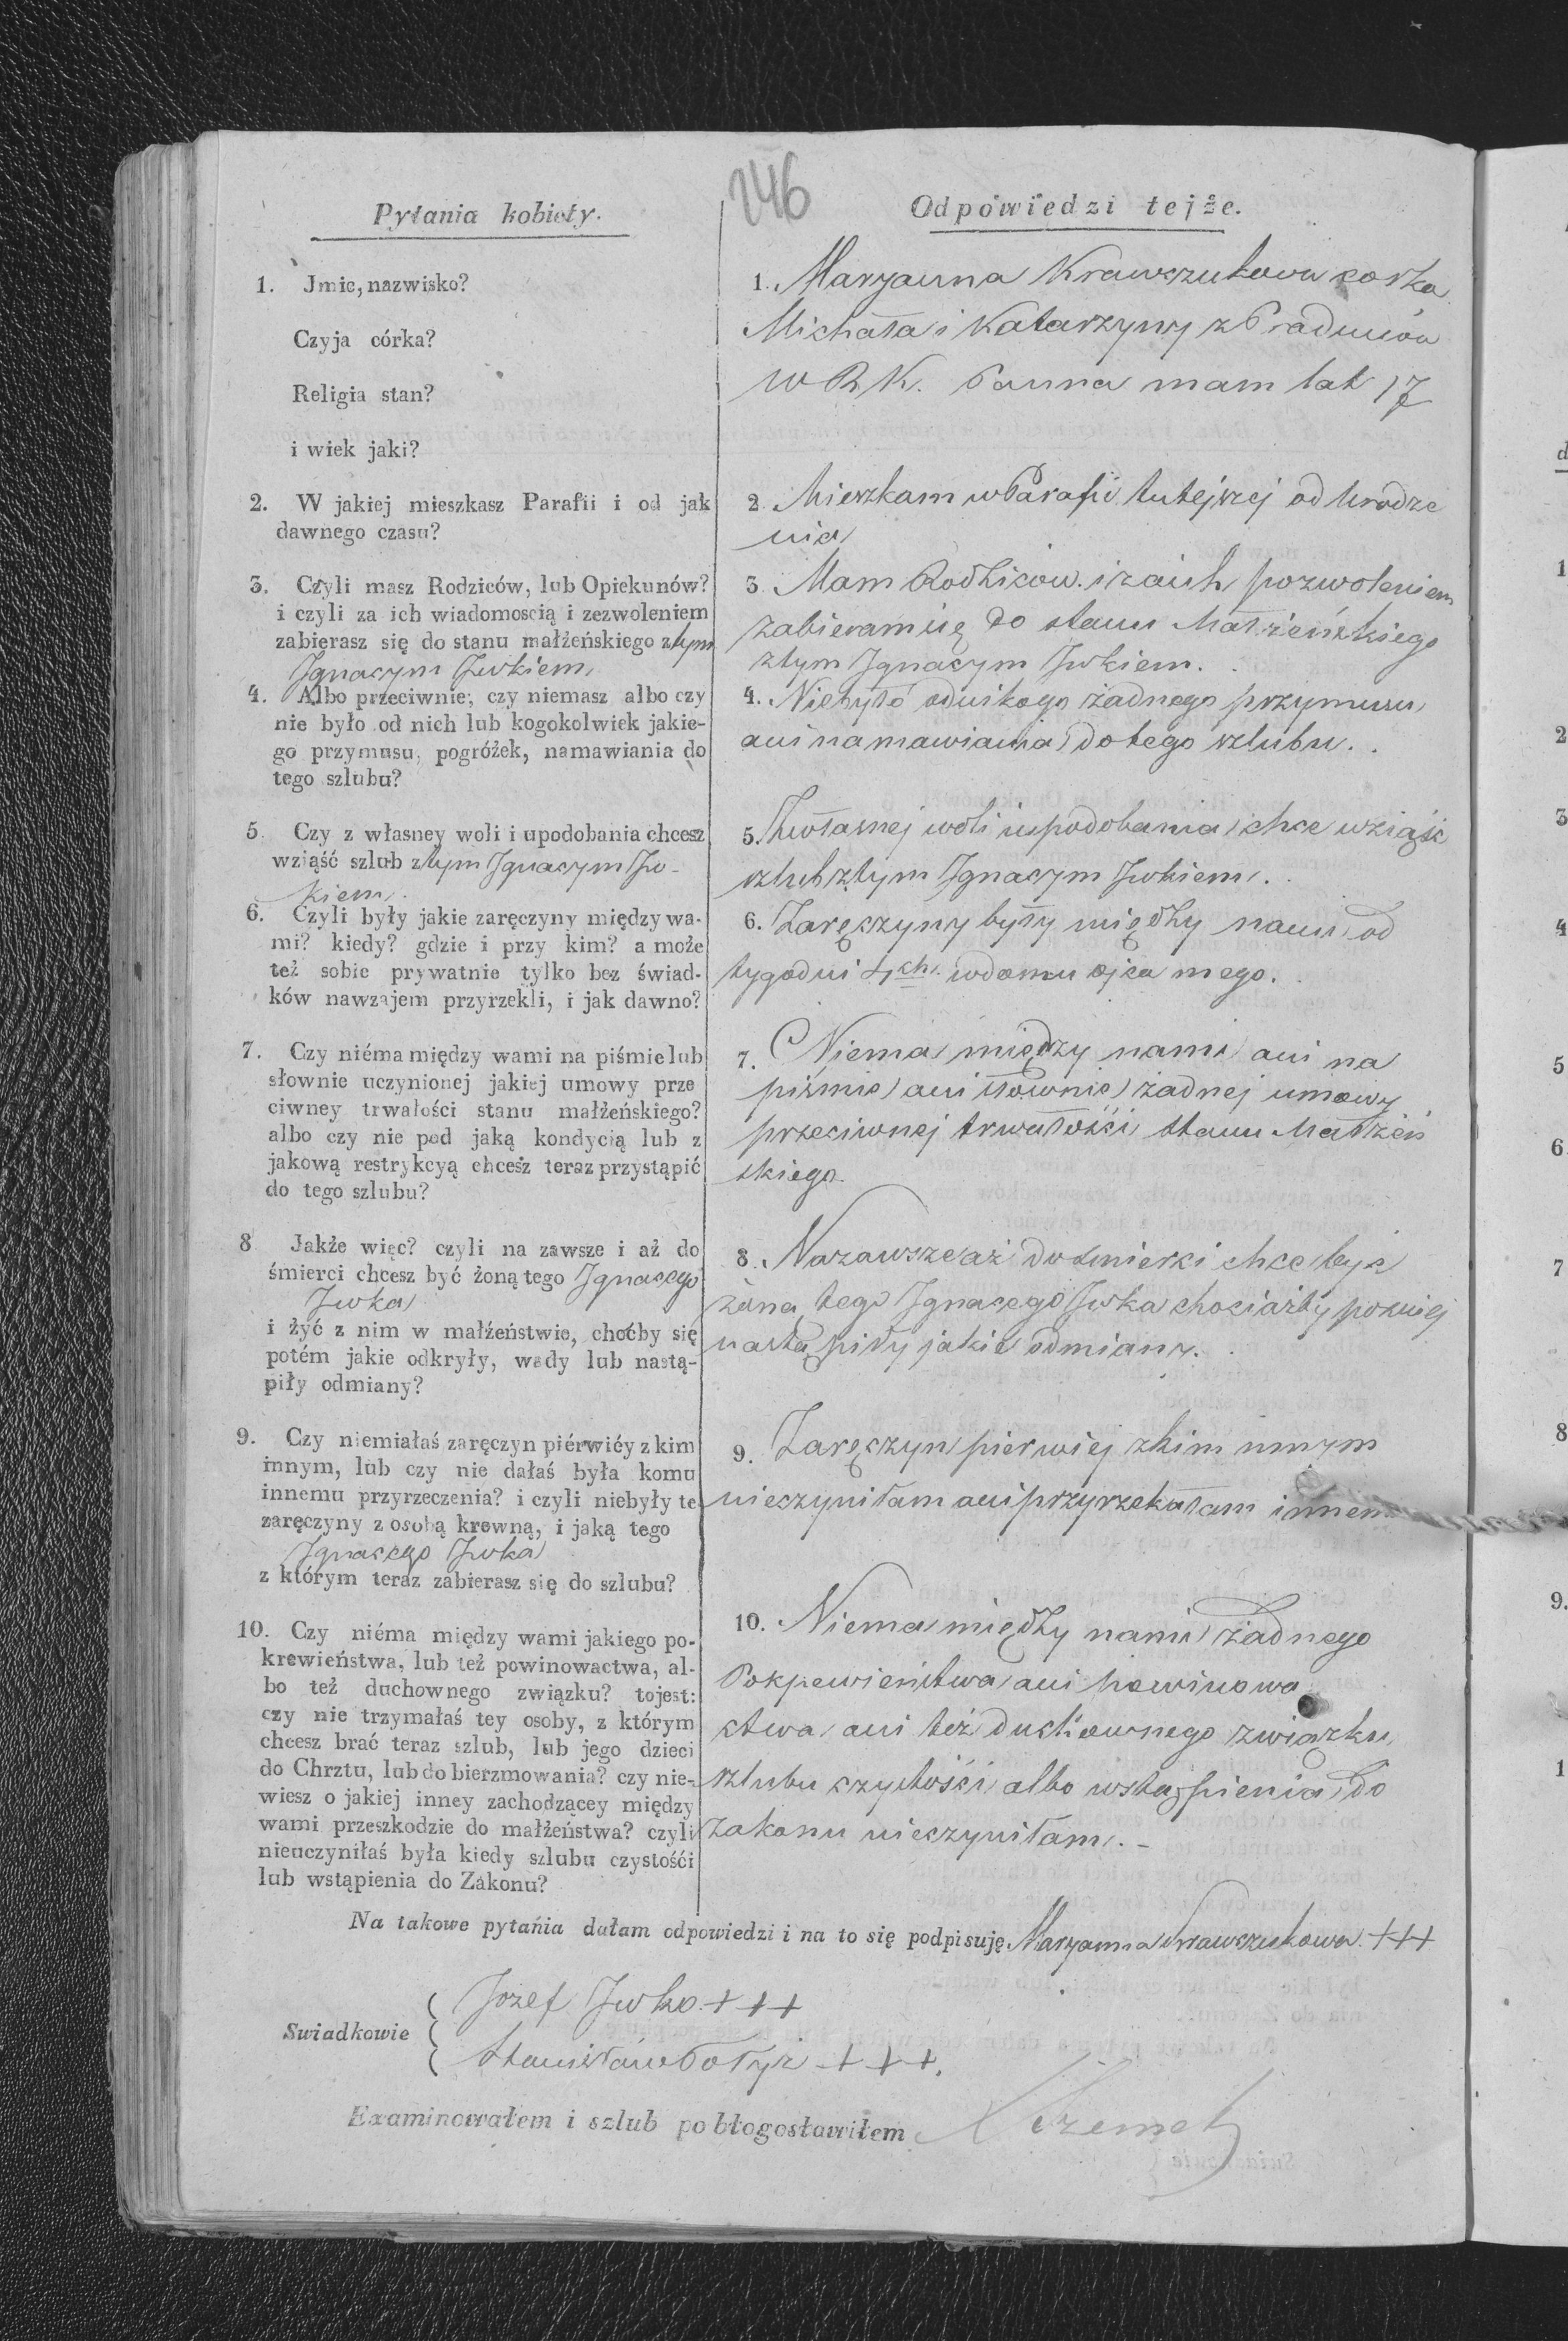 246
Pytania kobiety.
1. Jmie, nazwisko?
Czyja córka?
Religia stan?
i wiek jaki?
2. W jakiej mieszkasz Parafii i od jak
dawnego czasu?
3. Czyli masz Rodziców, lub Opiekunów?
i czyli za ich wiadomoscią i zezwoleniem
zabierasz się do stanu małżeńskiego z tym
Jgnacym Jwkiem
4. Albo przeciwnie, czy niemasz albo czy
nie było od nich lub kogokolwiek jakie-
go przymusu, pogróżek, namawiania do
tego szlubu?
5. Czy z własney woli i upodobania chcesz
wziąść szlub z tym Jgnacym Jw-
kiem.
6. Czyli były jakie zaręczyny między wa-
mi? kiedy? gdzie i przy kim? a może
też sobie prywatnie tylko bez świad-
ków nawzajem przyrzekli, i jak dawno?
7. Czy niéma między wami na piśmie lub
słownie uczynionej jakiej umowy prze
ciwney trwałości stanu małżeńskiego?
albo czy nie pod jaką kondycią lub z
jakową restrykcyą chcesz teraz przystąpić
do tego szlubu?
8 Jakże więc? czyli na zawsze i aż do
śmierci chcesz być żoną tego Jgnacego
Jwka
i żyć z nim w małżeństwie, choćby się
potém jakie odkryły, wady lub nastą-
piły odmiany?
9. Czy niemiałaś zaręczyn piérwiéy z kim
innym, lub czy nie dałaś była komu
innemu przyrzeczenia? i czyli niebyły te
zaręczyny z osobą krewną, i jaką tego
Jgnacego Jwka
z którym teraz zabierasz się do szlubu?
10. Czy niéma między wami jakiego po-
krewieństwa, lub też powinowactwa, al-
bo też duchownego związku? tojest:
czy nie trzymałaś tey osoby, z którym
chcesz brać teraz szlub, lub jego dzieci
do Chrztu, lub do bierzmowania? czy nie-
wiesz o jakiej inney zachodzącey między
wami przeszkodzie do małżeństwa? czyli
nieuczyniłaś była kiedy szlubu czystośći
lub wstąpienia do Zákonu?
Odpowiedzi tejże.
1. Maryanna Krawczukowa corka
Michała i Katarzyny z
W R K. Panna mam lat 17
2 Mieszkam w Parafii tutejszej od Urodze
nia
3 Mam Rodziców. i za ich pozwoleniem
zabieram się do stanu Małżeńskiego
z tym Jgnacym Jwkiem.
4. Niebyło od nikogo żadnego przymusu
ani namawiania do tego szlubu.
5. Zwłasnej woli i upodobania chce wziąść
szlub z tym Jgnacym Jwkiem.
6. Zaręczyny były między nami od
tygodni 4ch. w domu ojca mego.
7. Niema między nami ani na
piśmie ani słownie żadnej umowy
przeciwnej trwałości stanu Małżeń
skiego.
8. Nazawsze aż do śmierci chce być
żoną tego Jgnacego Jwka chociażby pozniej
nastąpiły jakie odmiany.
9. Zaręczyn pierwiej z kim innym
nieczyniłam ani przyrzekałam innem
10. Niema między nami żadnego
Pokrewieństwa ani Powinowa
ctwa ani też duchownego związku
szlubu czystości albo wstąpienia do
Zakonu nieczyniłam. -
Na takowe pytania dałam odpowiedzi i na to się podpisuję Maryanna Krawczukowa. +++
Swiadkowie
Jozef Jwko +++
Stanisław +++.
Examinowałem i szlub pobłogosławiłem
d
1
2
3
4
5
6
7
8
9.
1